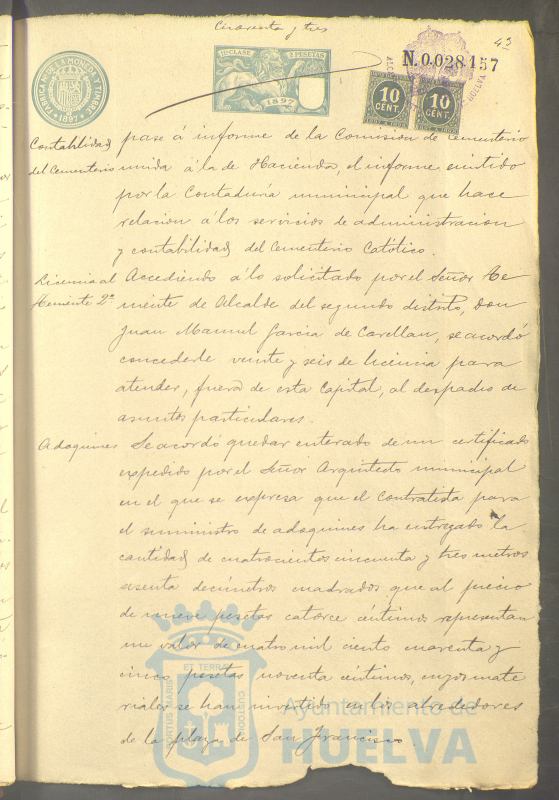 Cincuenta y tres
43
FABRICA DE LA MONEDA Y TIMBRE
1897
11ª CLASE 2 PESETAS
1897
N.0.028.157
10 CENT. 10 CENT.
HUELVA
Contabilidad pase á informe de la Comision de Cementerio
del Cementerio unida á la de Hacienda, el informe emitido
por la Contaduría municipal que hace
relacion á los servicios de administracion
y contabilidad del Cementerio Católico.
Licencia al Accediendo á lo solicitado por el Señor Te-
Teniente 2º niente de Alcalde del segundo distrito, Don
Juan Manuel Garcia de Carellan, se acordó
concederle veinte y seis de licencia para
atender, fuera de esta Capital, al despacho de
asuntos particulares.
Adoquines Se acordó quedar enterado de un certificado
expedido por el Señor Arquitecto municipal
en el que se expresa que el contratista para
el suministro de adoquines ha entregado la
cantidad de cuatrocientos cincuenta y tres metros
decimetros cuadrados que al precio
de nueve pesetas catorce céntimos representan
un valor de cuatro mil ciento cuarenta y
cinco pesetas noventa céntimos, cuyos mate
riales se han invertido en los alrededores
de la plaza de San Francisco.
Ayuntamiento de
HUELVA
ET TERRÆ
PORTUS MARIS
CUSTODIA